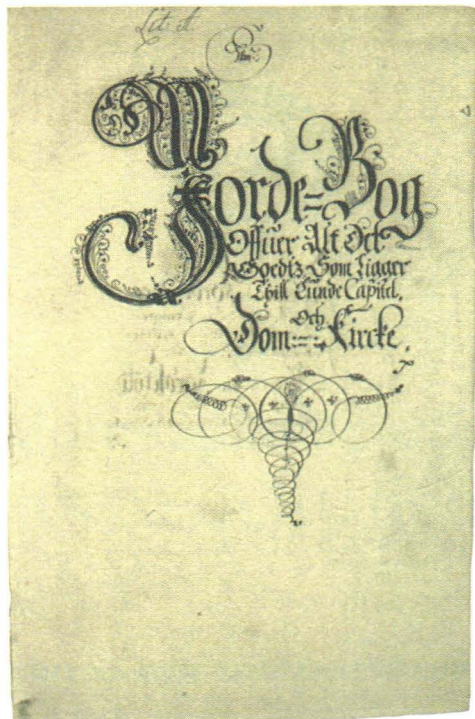 Lit A
Jorde=Bog
Offuer Alt Det
Goediz Som Ligger
Thill Lunde Capitel,
Och
Dom=Kircke.